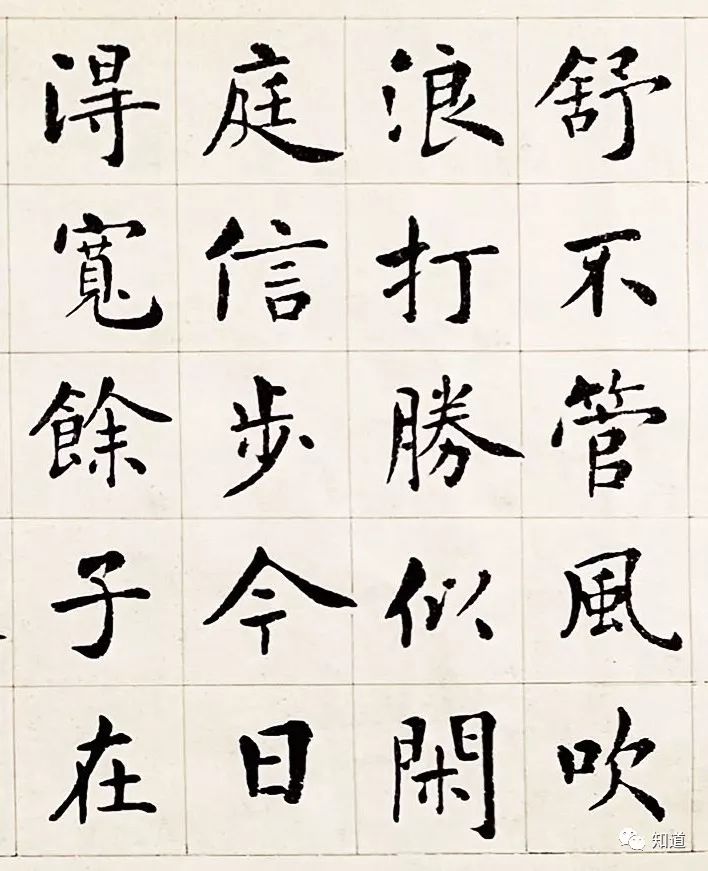 舒不管風吹
浪打勝似閑
庭信步今日
得寬餘子在
知道